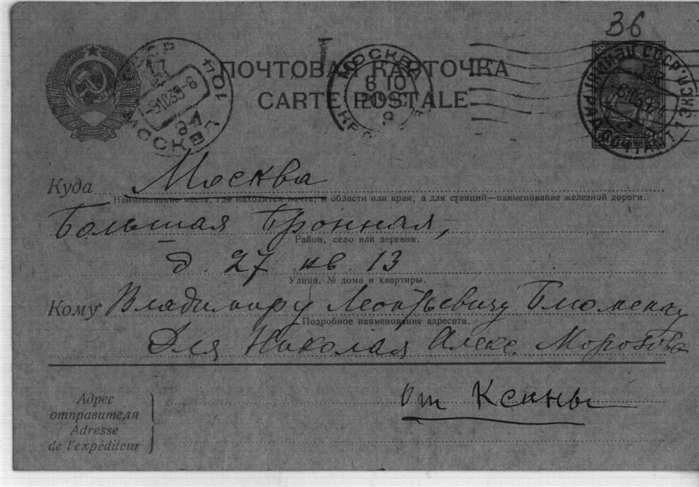 36
ПОЧТОВАЯ КАРТОЧКА
CARTE POSTALE
МОСКВА
8 10
МОСКВА
Куда Москва
Наименование места, где находится почта, и области или края, а для станций—наименование железной дороги.
Большая Бронная,
Район, село или деревня.
д. 27 кв. 13
Улица, № дома и квартиры.
Кому Владимиру Леонтьевичу
Подробное наименование адресата.
Для Николая Алекс Морозова
От Ксаны
Адрес
отправителя
Adresse
de l'expéditeur